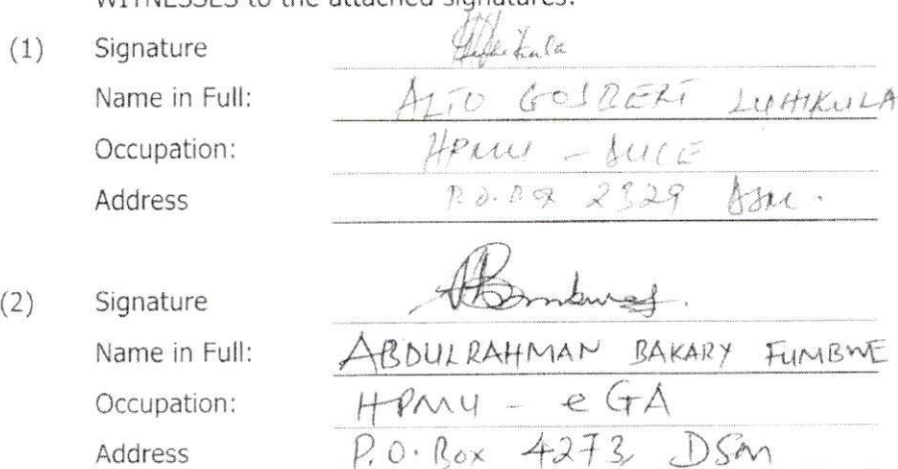 WITNESSES to the attached signatures:
(1) Signature
Name in Full: ALTO GOSBERT LUHIKULA
Occupation: HPMU - DUCE
Address P.O. BOX 2329 DSM.
(2) Signature
Name in Full: ABDULRAHMAN BAKARY FUMBWE
Occupation: HPMU - eGA
Address P.O. Box 4273, DSM